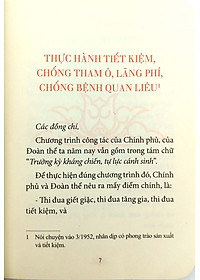 THỰC HÀNH TIẾT KIỆM,
CHỐNG THAM Ô, LÃNG PHÍ,
CHỐNG BỆNH QUAN LIÊU¹
Các đồng chí,
Chương trình công tác của Chính phủ, của
Đoàn thể ta năm nay vẫn gồm trong tám chữ
"Trường kỳ kháng chiến, tự lực cánh sinh".
Để thực hiện đúng chương trình đó, Chính
phủ và Đoàn thể nêu ra mấy điểm chính, là:
- Thi đua giết giặc, thi đua tăng gia, thi đua
tiết kiệm, và
1 Nói chuyện vào 3/1952, nhân dịp có phong trào sản xuất
và tiết kiệm.
7